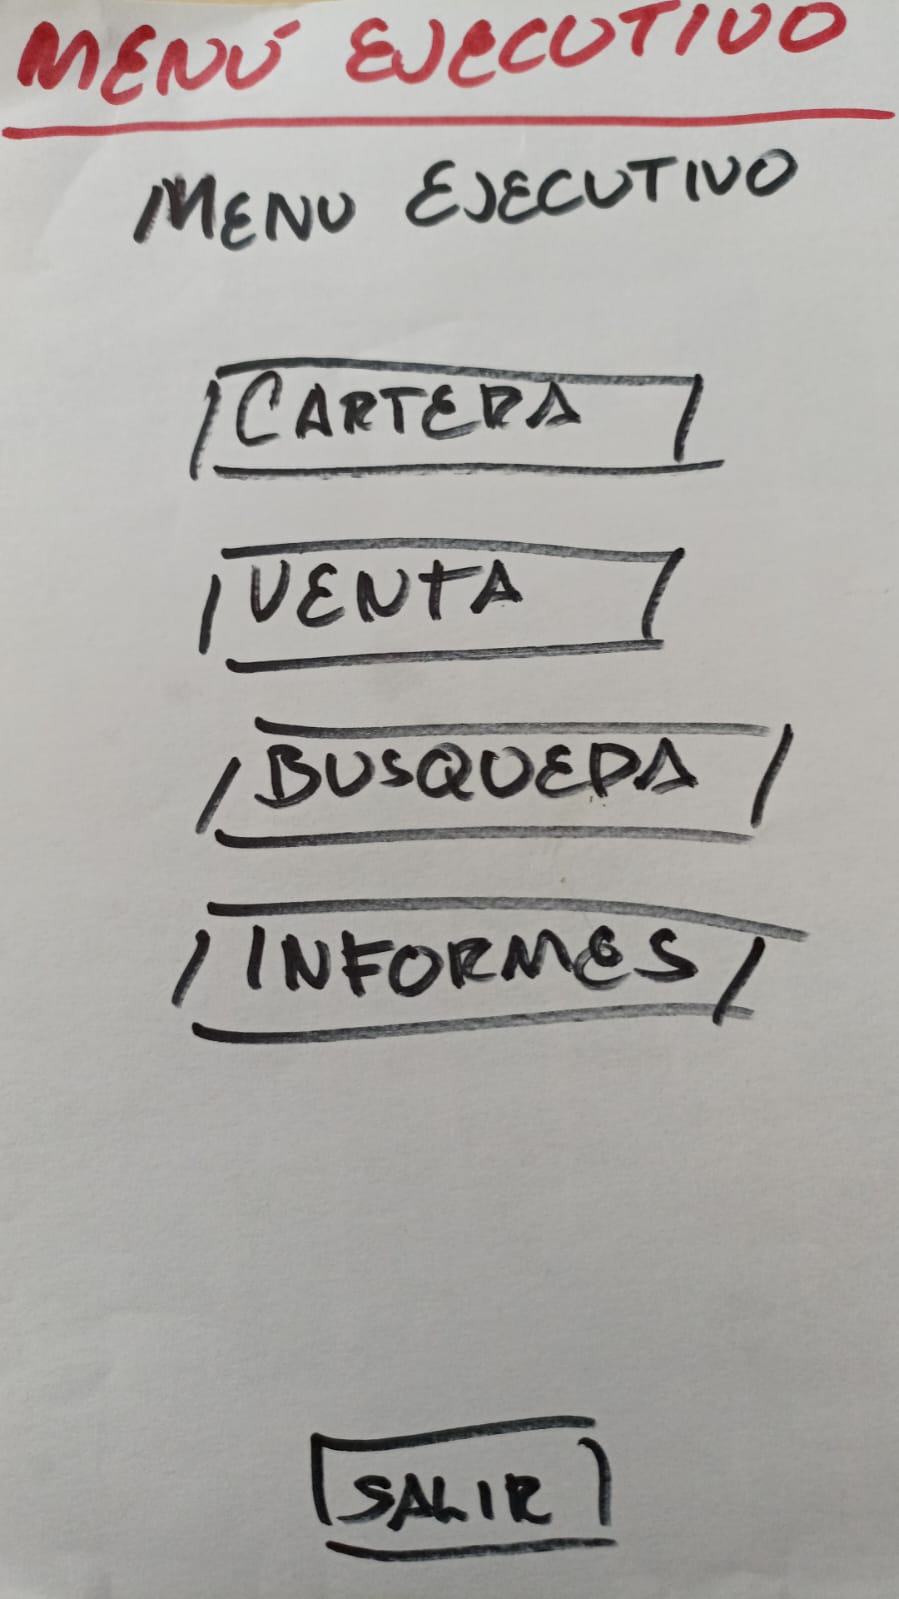 MENÚ EJECUTIVO
MENU EJECUTIVO
CARTERA
VENTA
BUSQUEDA
INFORMES
SALIR